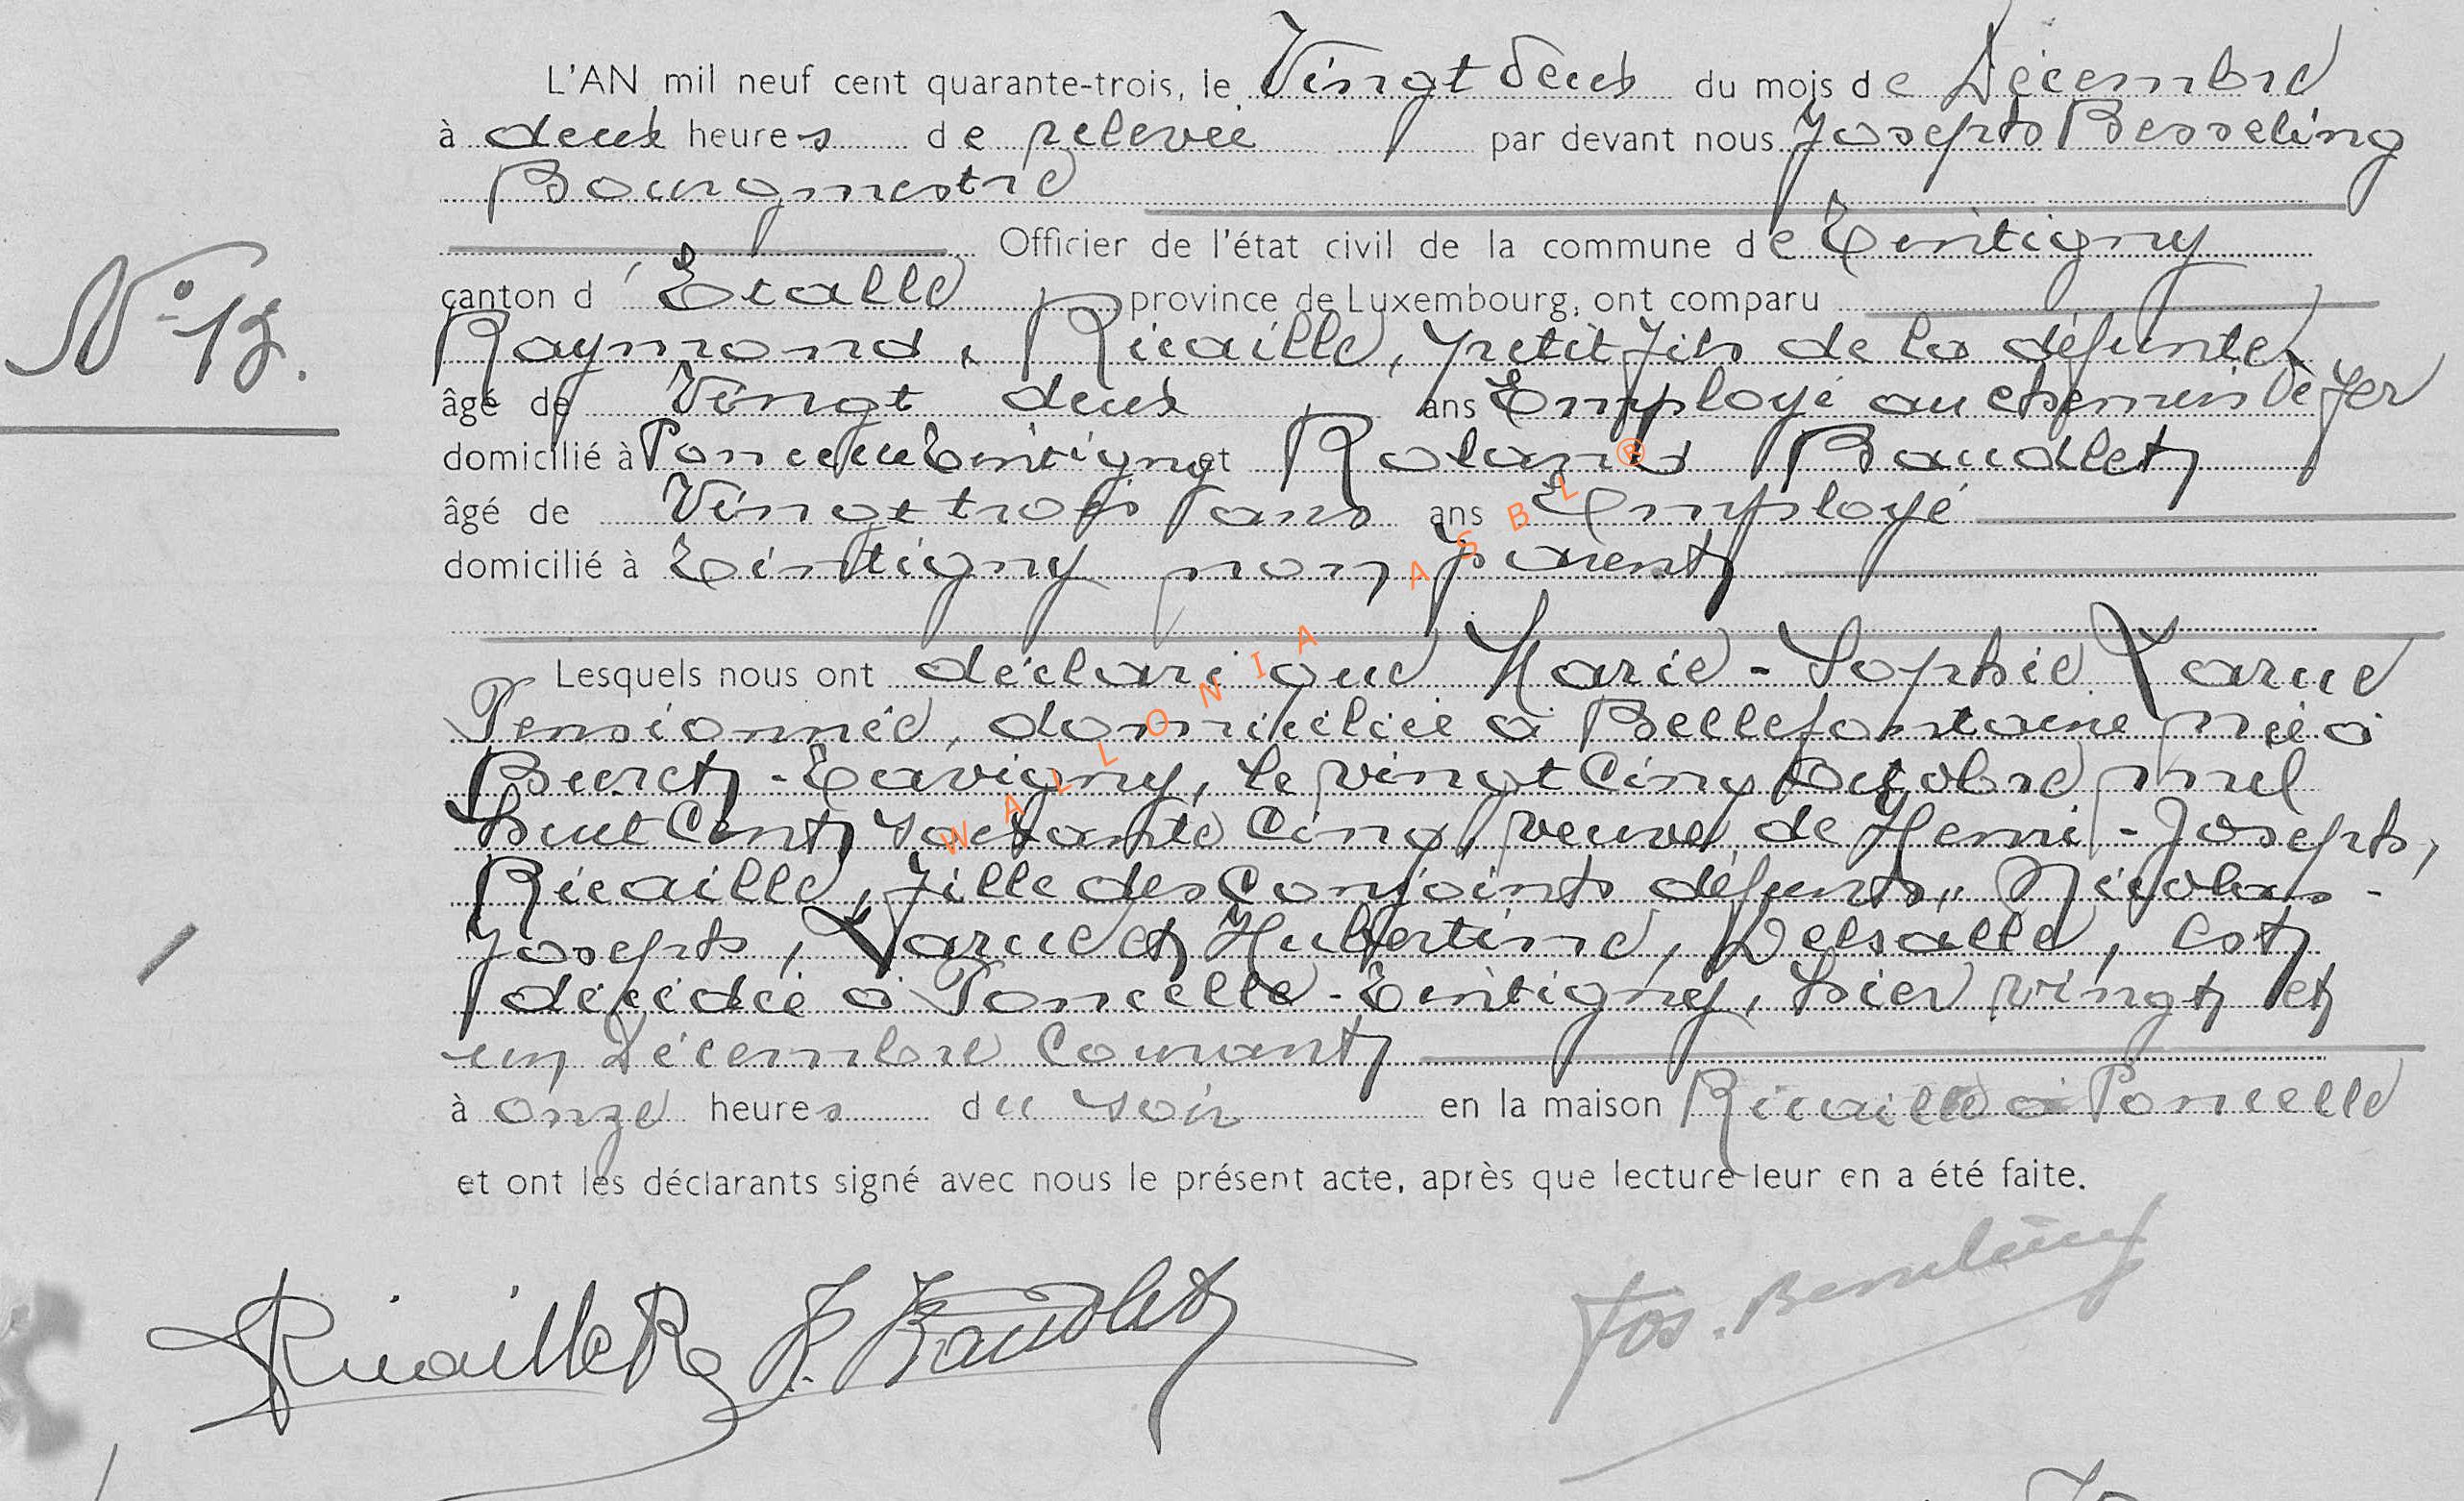 L'AN mil neuf cent quarante-trois, le Vingt deux du mois de Décembre
à deux heures de relevée par devant nous Joseph Besseling
Bourgmestre
Officier de l'état civil de la commune de Tintigny
N° 13.
canton d'Etalle province de Luxembourg, ont comparu
Raymond, Ricaille, petit fils de la défunte,
âgé de Vingt deux ans Employé au chemin de fer
domicilié à Poncelle Tintigny et Roland Baudlet
âgé de Vingt trois ans ans Employé
domicilié à Tintigny non parent
Lesquels nous ont déclaré que Marie-Sophie Larue
Pensionnée, domiciliée à Bellefontaine née à
Buret-Tavigny, le vingt cinq Octobre mil
huit Cent soixante Cinq, veuve de Henri-Joseph,
Ricaille, fille des Conjoints défunts, Nicolas-
Joseph, Larue et Hubertine, Delsalle, est
décédée à Poncelle-Tintigny, hier vingt et
un Décembre Courant
à onze heures du soir en la maison Ricaille à Poncelle
et ont les déclarants signé avec nous le présent acte, après que lecture leur en a été faite.
Ricaille R. R. Baudlet Jos. Besseling
WALLONIA ASBL ®